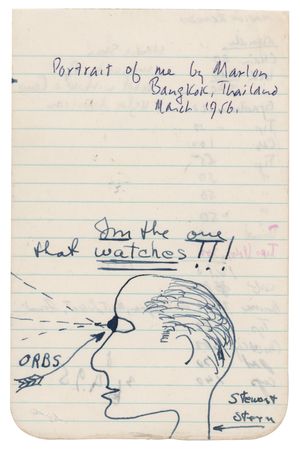 Portrait of me by Marlon
Bangkok, Thailand
March 1956.
I'm the one
that watches!!!
ORBS
Stewart
Stern